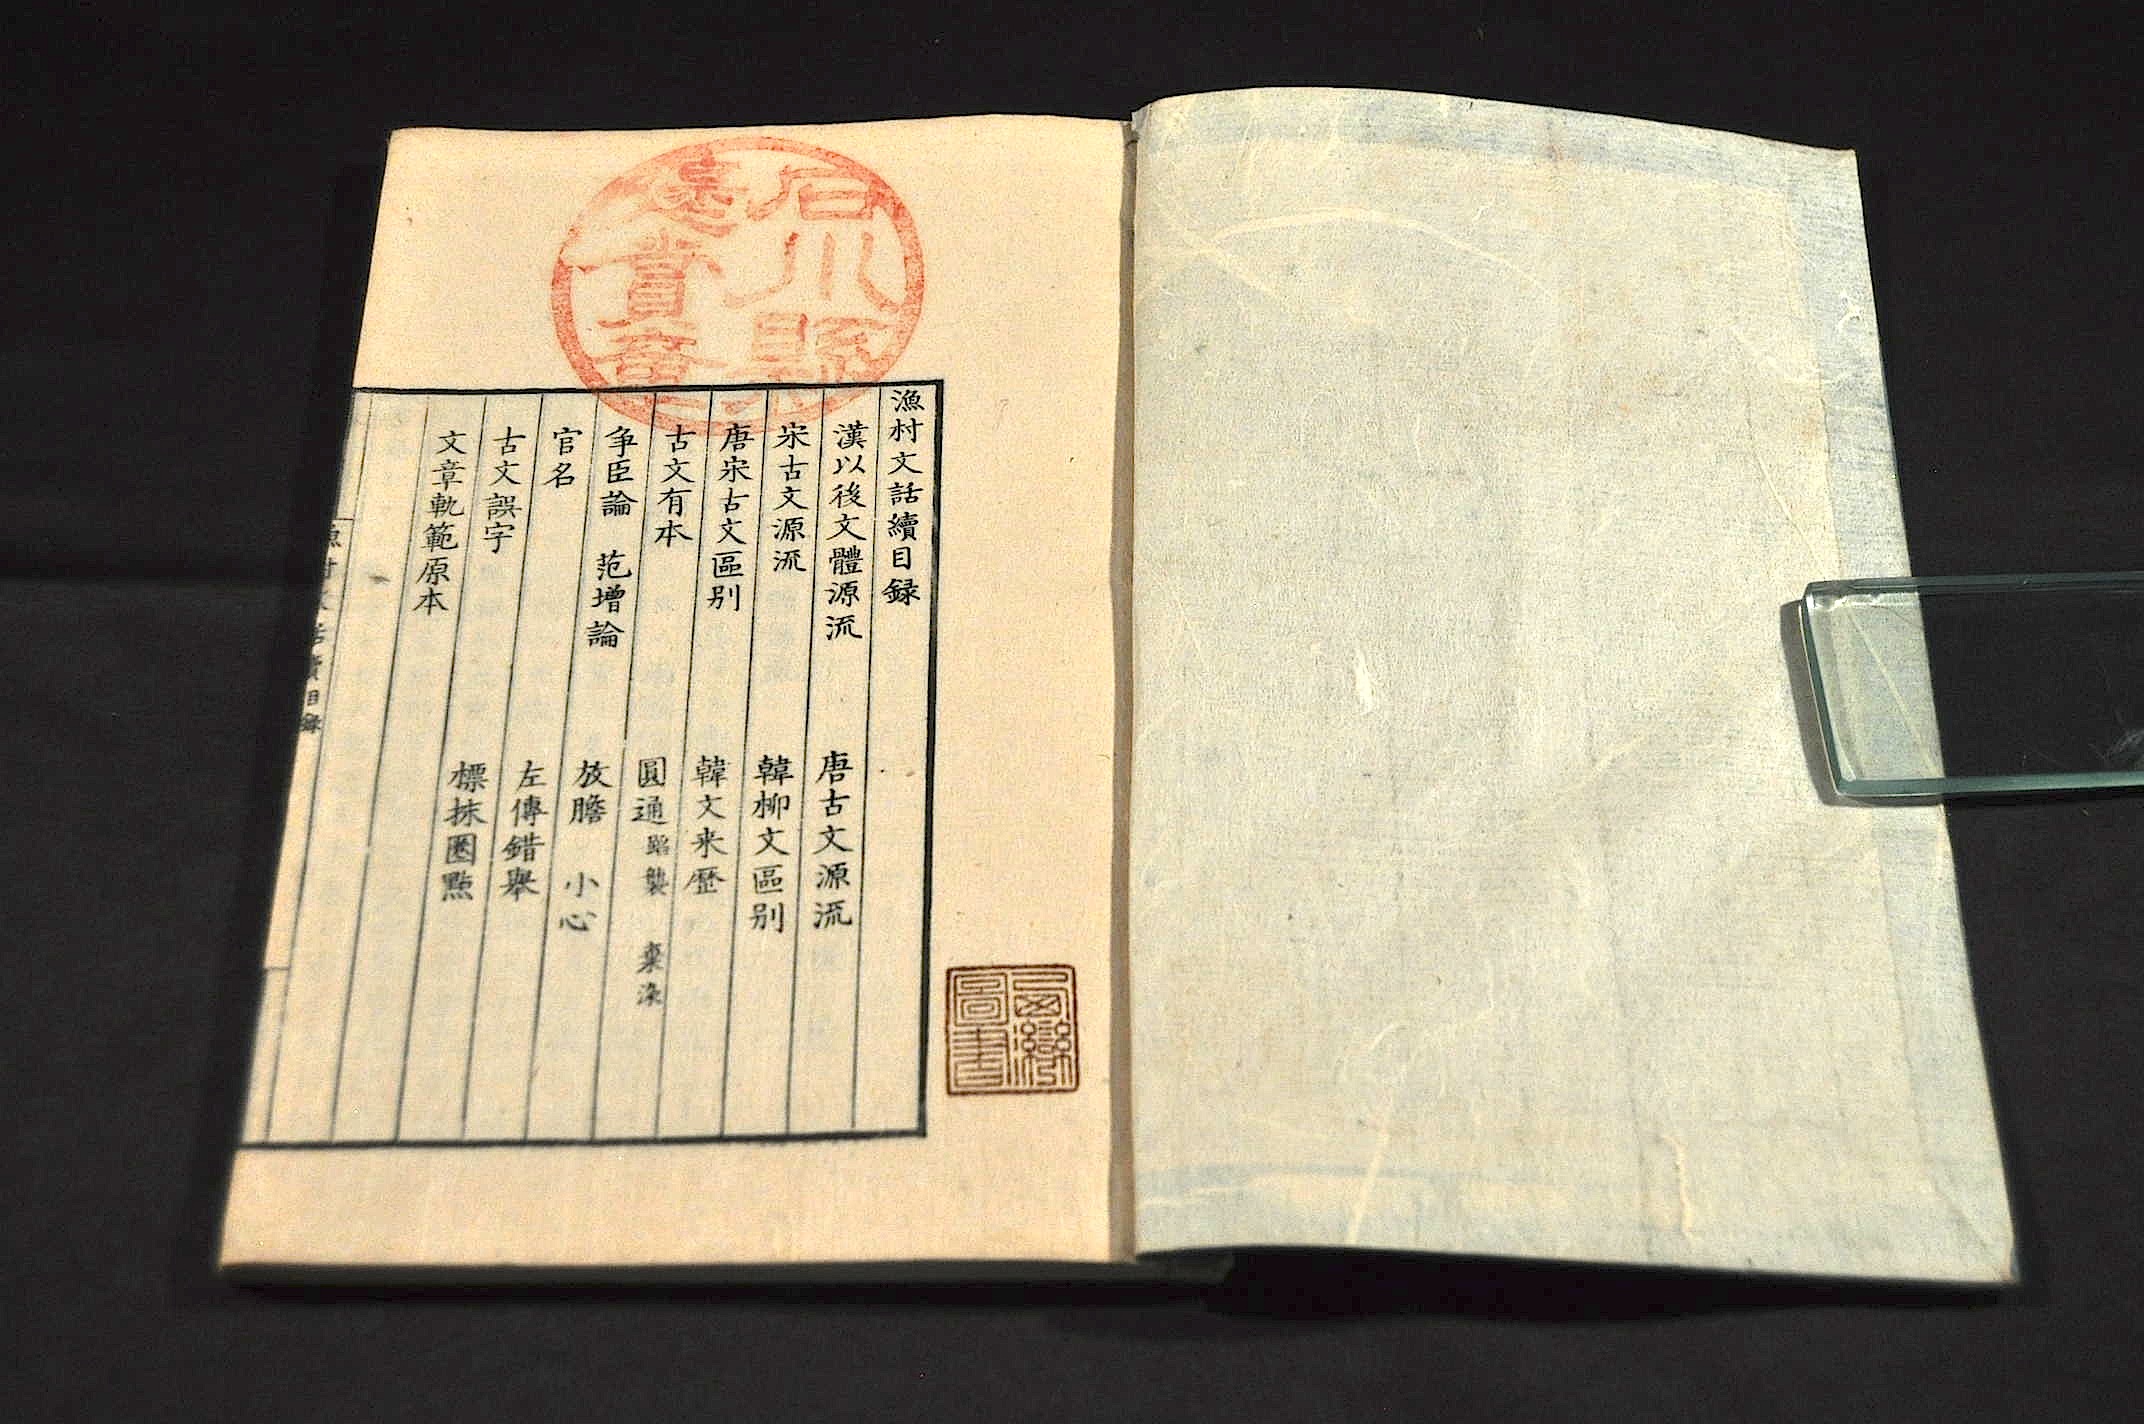 漁村文話續目録
漢以後文體源流 唐古文源流
宋古文源流 韓柳文區别
唐宋古文區别 韓文来歴
古文有本 圓通 蹈襲 棄染
争臣論 范增論 放膽 小心
官名 左傳錯舉
古文誤字 標抹圏點
文章軌範原本
漁村文話續目錄
石川縣